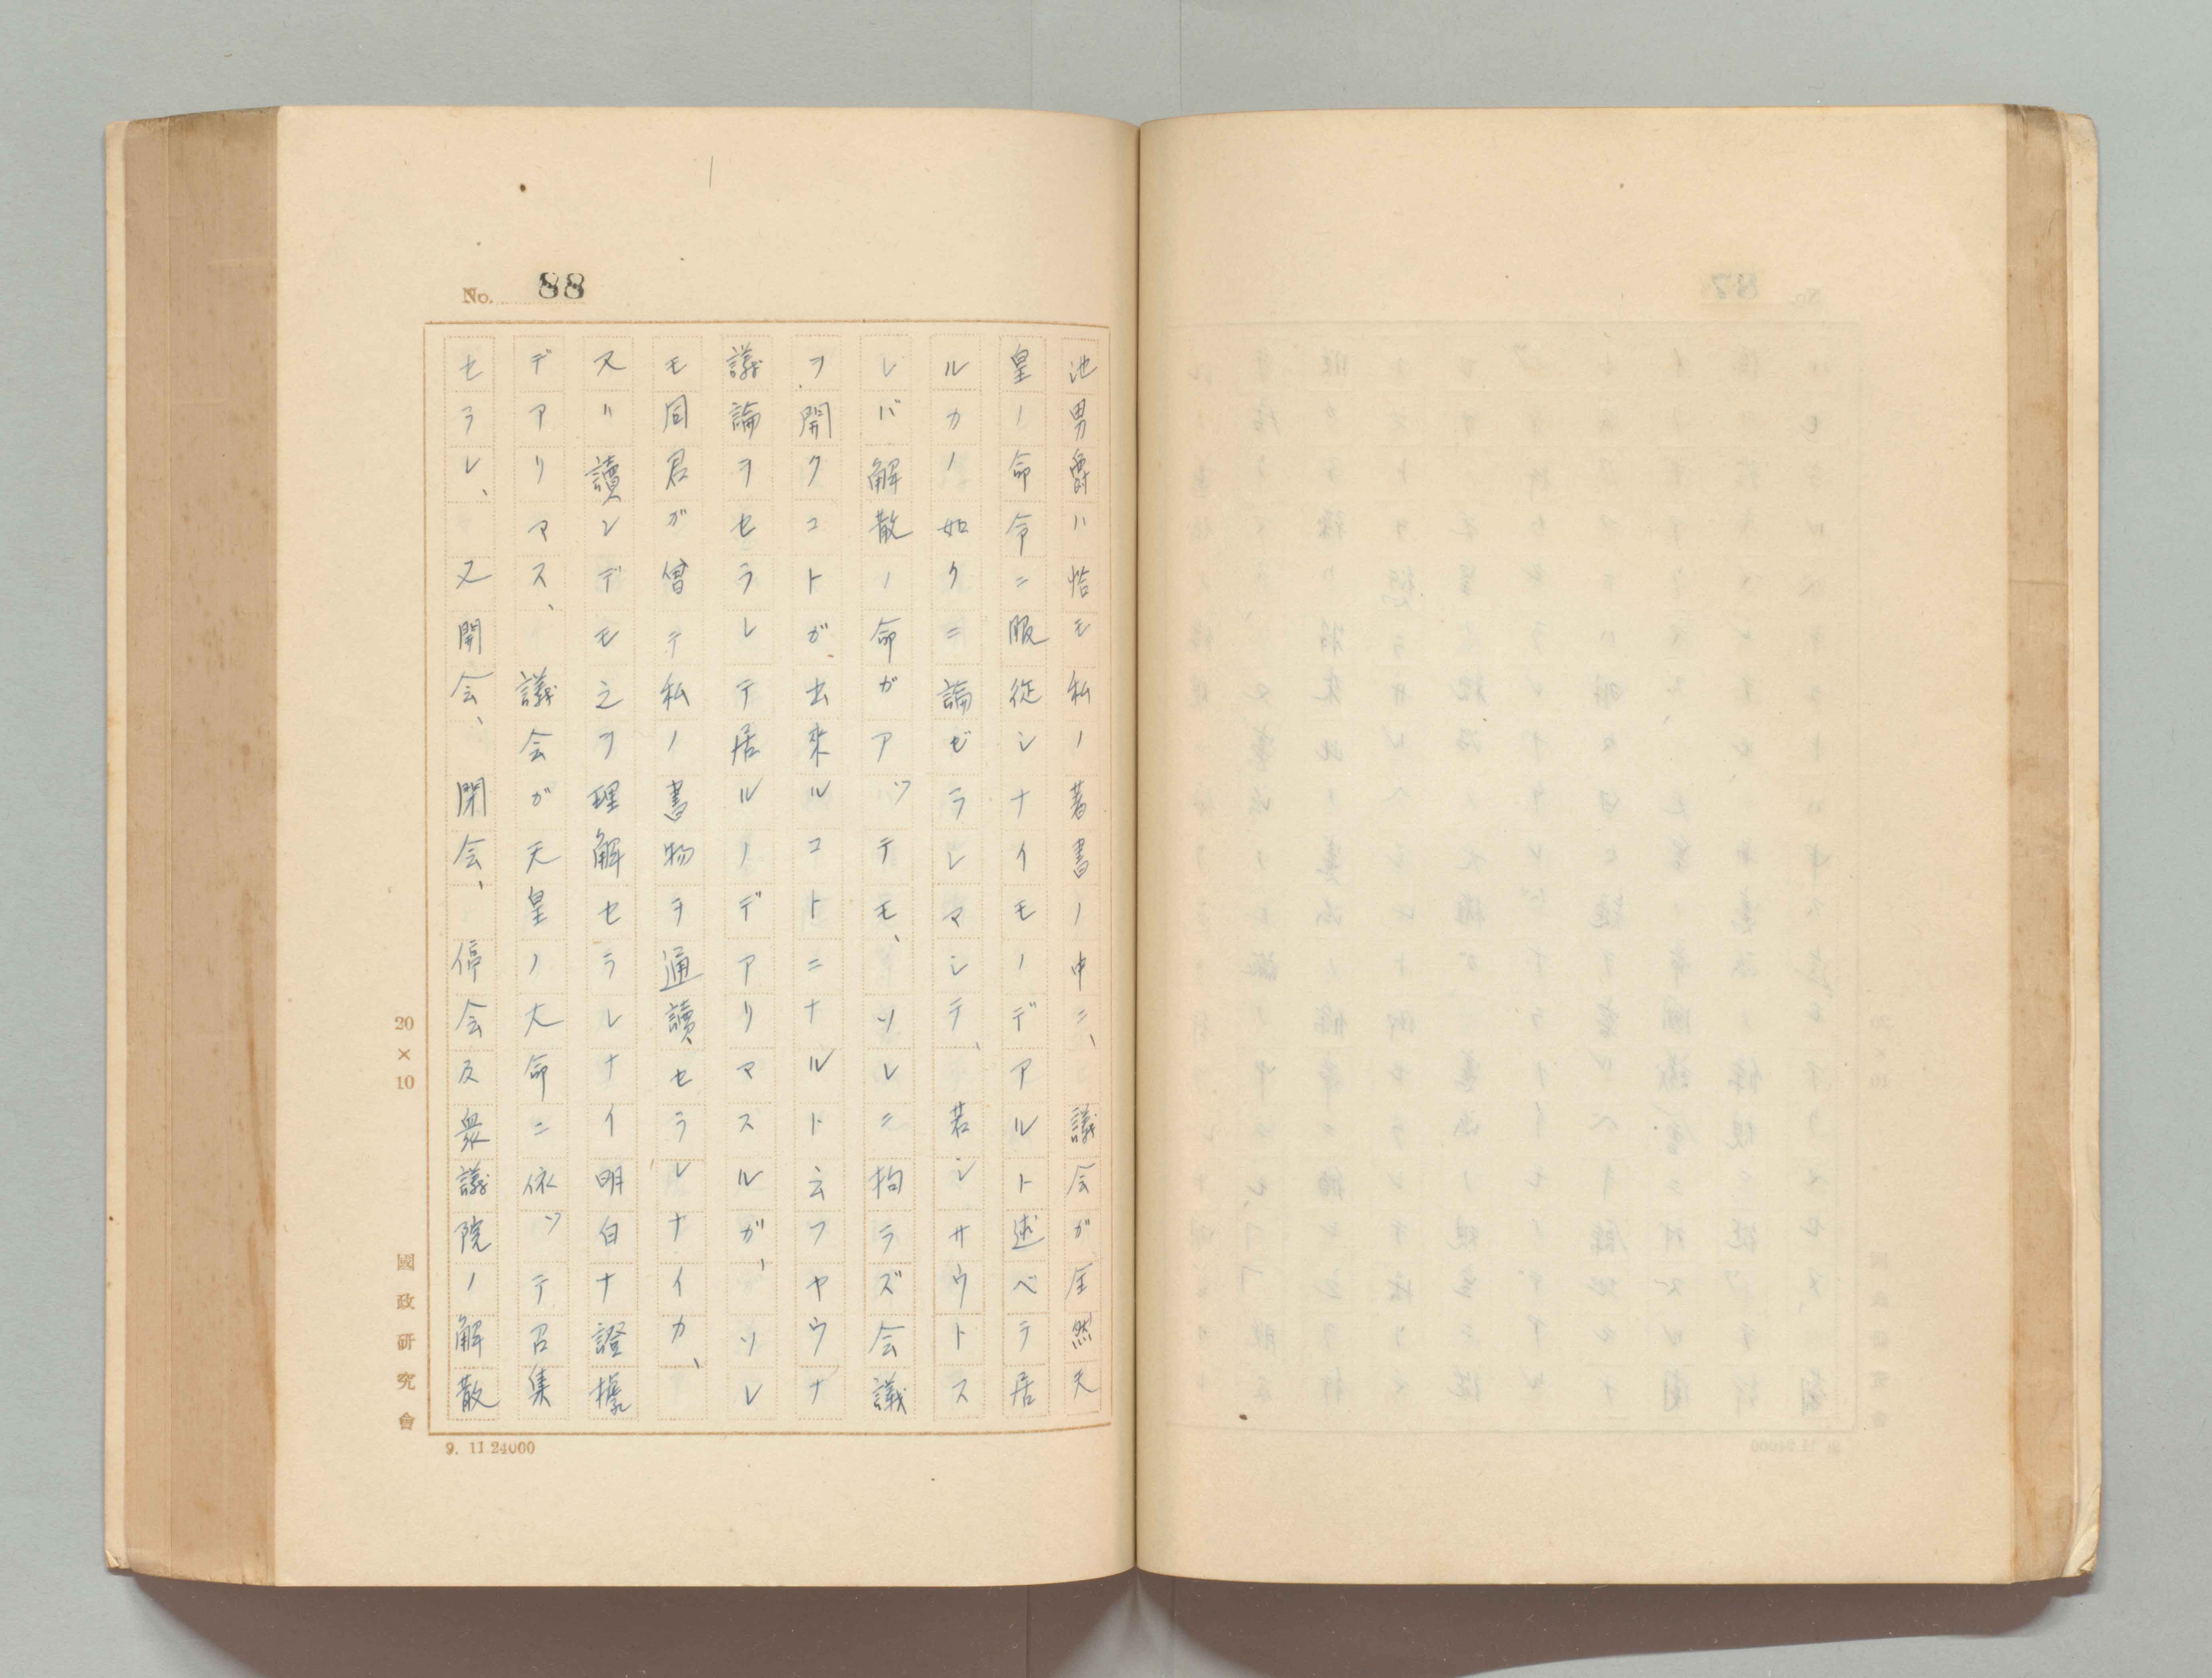 No. 88
池男爵ハ恰モ私ノ著書ノ中ニ、議会ガ全然天
皇ノ命令ニ服従シナイモノデアルト述ベラ居
ルカノ如クニ論ゼラレマシテ、若シサウトス
レバ解散ノ命ガアッテモ、ソレニ拘ラズ会議
ヲ開クコトガ出来ルコトニナルト云フヤウナ
議論ヲセラレテ居ルノデアリマスルガ、ソレ
モ同君ガ曾テ私ノ書物ヲ通讀セラレナイカ、
又ハ讀ンデモ之ヲ理解セラレナイ明白ナ證據
デアリマス、議会ガ天皇ノ大命ニ依ッテ召集
セラレ、又開会、閉会、停会及衆議院ノ解散
20×10
國政研究會
9. 11.24000